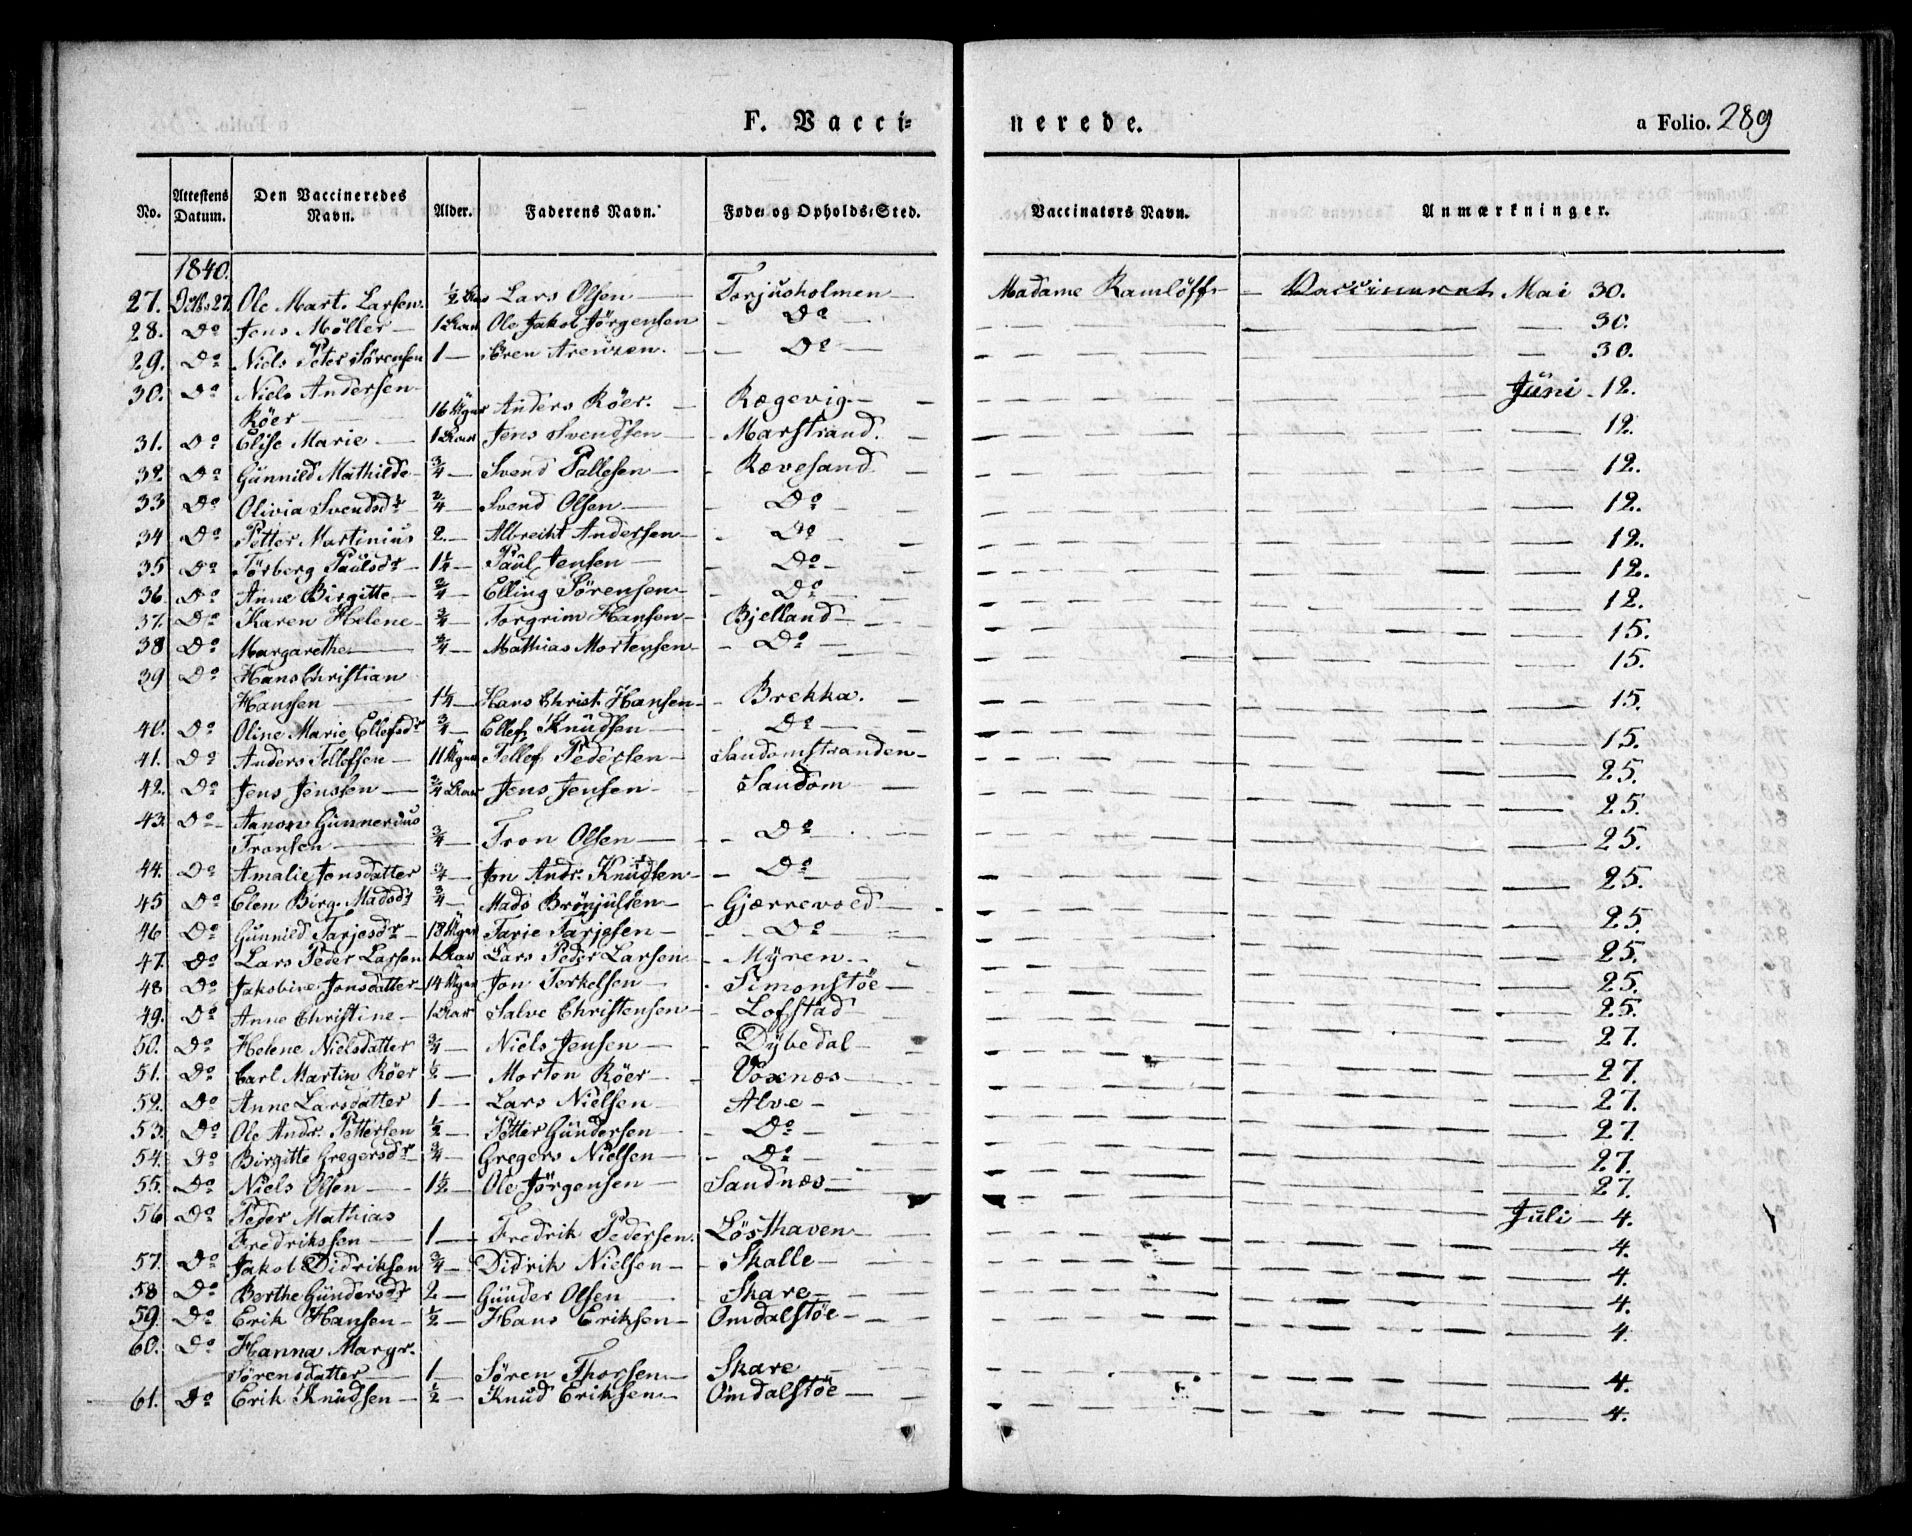 F. Vaccinerede. a Folio. 289
No. Attestens Datum. Den Vaccineredes Navn. Alder. Faderens Navn. Føde- og Opholds-Sted. Vaccinators Navn. Anmærkninger.
1840.
27. 27. Ole Mart. Larsen. ½ Lars Olsen — Torjusholmen — Madame Ramlöff — Vaccineret Mai 30.
28. Do Jens Möller — 1 Ole Jakob Jörgensen — Do — 30.
29. Do Niels Peter Sörensen 1 — Sören Arenzen. — Do — 30.
30. Do Niels Andersen Juni 12.
Röer — 16 Anders Röer. — Rægevig —
31. Do Elise Marie — 1 Jens Svendsen — Marstrand. — 12.
32 Do Gunnild Mathilde — ¾ — Svend Pallesen — Rævesand — 12.
33 Do Olivia Svendsdr ¾ — Svend Olsen — Do — 12.
34 Do Petter Martinius 2 — Albreiht Andersen — Do — 12.
35 Do Törberg Paulsdr — 1¼ — Paul Jensen — Do — 12.
36. Do Anne Birgitte — ¾ — Elling Sörensen — Do — 12.
37. Do Karen Helene — ¾ — Torgrim Hansen — Bjelland — 15.
38 Do Margarethe — ¾ — Mathias Mortensen — Do — 15.
39 Do Hans Christian
Hanssen — 1¼ — Hans Christ. Hansen — Brekka. — 15.
40. Do Oline Marie Ellefsdr ¾ — Ellef Knudsen — Do — 15.
41. Do Anders Tellefsen — 11 Tellef Pedersen — Sandomstranden — 25.
42. Do Jens Jenssen — ¾ Jens Jensen — Sandom — 25.
43. Do Aanon Gunnerius
Tronsen — ¾ — Tron Olsen — Do — 25.
44. Do Amalie Jonsdatter ¾ — Jon Andr. Knudsen — Do — 25.
45 Do Elen Birg. Madsdr ¾ — Mads Brönjulsen — Gjærrevold — 25.
46 Do Gunnild Tarjesdr — 18 Tarje Tarjesen — Do — 25.
47. Do Lars Peder Larsen 1 Lars Peder Larsen — Myren — 25.
48 Do Jakobine Jonsdatter — 14 Jon Terkelsen — Simonstöe — 25.
49. Do Anne Christine — 1 Salve Christensen — Lofstad — 25.
50. Do Helene Nielsdatter ¾ — Niels Jensen — Dybedal — 27.
51. Do Carl Martin Röer ½ — Morten Röer — Voxnæs — 27.
52. Do Anne Larsdatter 1 — Lars Nielsen — Alve — 27.
53. Do Ole Andr. Pettersen ½ — Petter Gundersen — Do — 27.
54. Do Birgitte Gregersdr — ¾ — Gregers Nielsen — Do — 27.
55. Do Niels Olsen — 1½ — Ole Jörgensen — Sandnæs — 27.
56 Do Peder Mathias Juli — 4.
Fredrikssen — 1 — Fredrik Pedersen. Lösthaven —
57. Do Jakob Didriksen ¾ — Didrik Nielsen — Skalle — 4.
58 Do Berthe Gundersdr 2 — Gunder Olsen — Skare — 4.
59. Do Erik Hansen — ½ — Hans Eriksen — Omdalstöe — 4.
60. Do Hanna Margr. 4.
Sörensdatter — 1 — Sören Thorsen — Skare — 4.
61. Do Erik Knudsen — ½ — Knud Eriksen — Omdalstöe — 4.